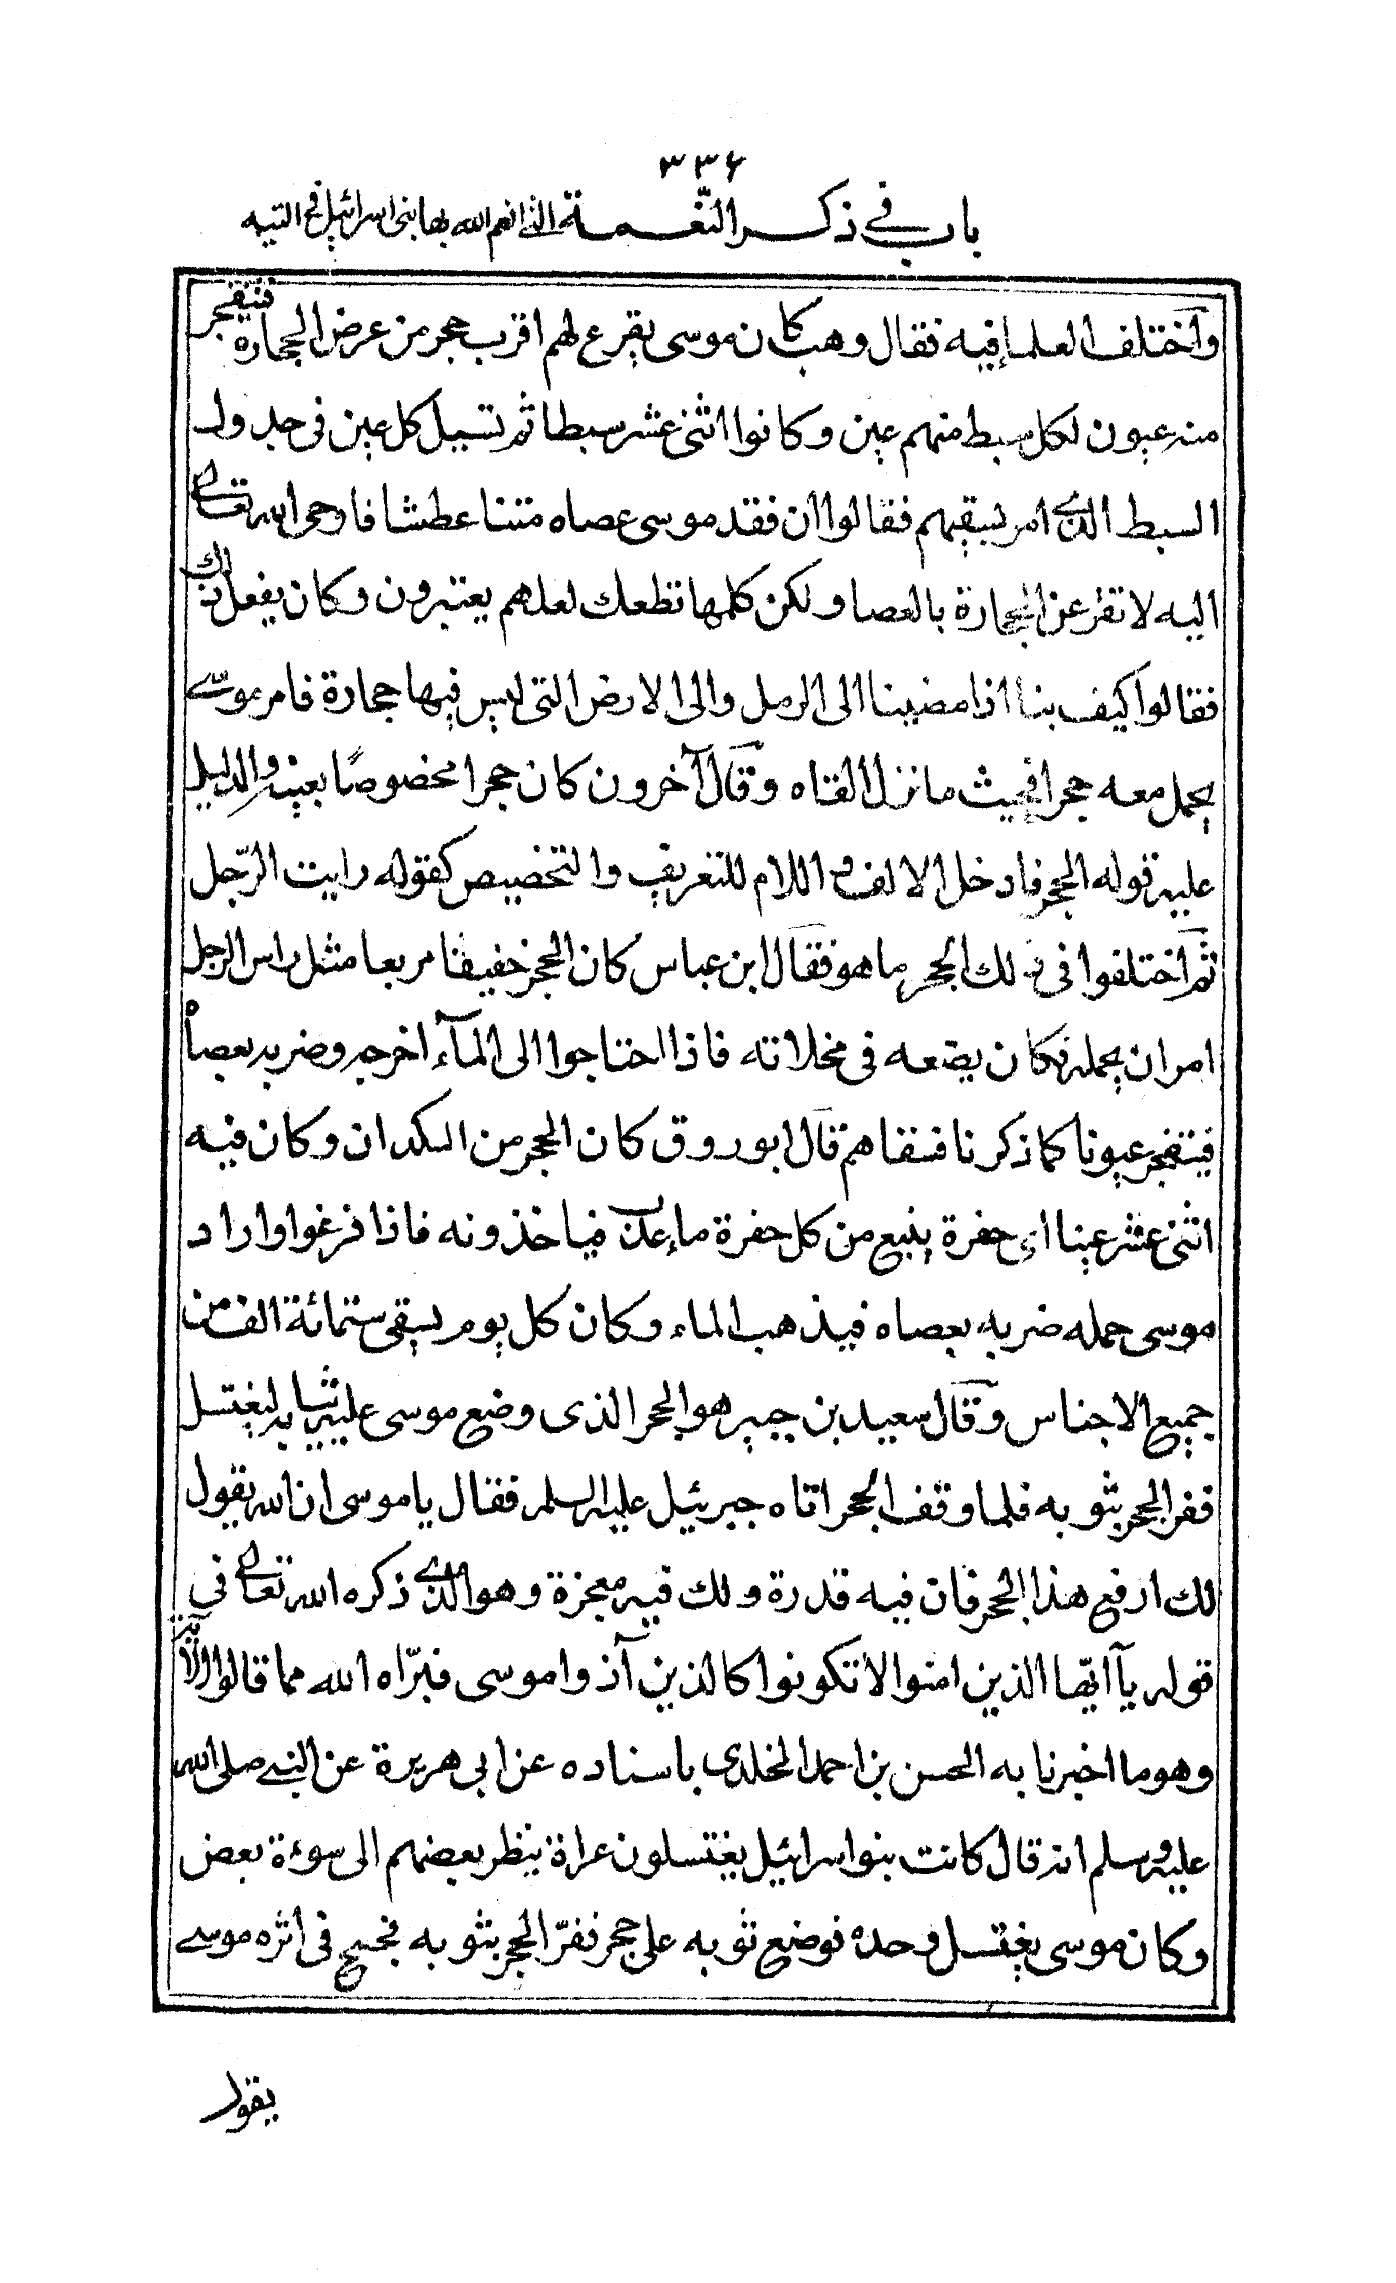 ٣٣٤
باب في ذكر النّعمة التي انعم الله بها بنى اسرائيل في التيه
واختلف العلماء فيه فقال وهب كان موسى يقرع لهم اقرب حجر من عرض الحجارة فتنفجر
منه عيون لكل سبط منهم عين وكانوا اثنى عشر سبطا ثم تسيل كل عين فى جدول
السبط الذي امر يسقيهم فقالوا ان فقد موسى عصاه متنا عطشا فاوحى الله تعالى
اليه لا تقرعن الحجارة بالعصا ولكن كلمها تطعك لعلهم يعتبرون وكان يفعل ذلك
فقالوا كيف بنا اذا مضينا الى الرمل والى الارض التى ليس فيها حجارة فامر موسى
يحمل معه حجرا فحيث ما نزل القاه وقال آخرون كان حجرا مخصوصًا بعينه والدليل
عليه قوله الحجر فادخل الالف و اللام للتعريف والتخصيص كقوله رايت الرّجل
ثم اختلفوا فى ذلك الحجر ما هو فقال ابن عباس كان الحجر خفيفا مربعا مثل راس الرجل
امر ان يحمله فكان يضعه فى مخلاته فاذا احتاجوا الى المآء اخرجه وضربه بعصاه
فيتفجر عيونا كما ذكرنا فسقاهم قال ابو روق كان الحجر من الكدان وكان فيه
اثنى عشر عينا اى حفرة ينبع من كل حفرة ماء عذب فياخذونه فاذا فرغوا واراد
موسى حمله ضربه بعصاه فيذهب الماء وكان كل يوم يسقى ستمائة الف من
جميع الاجناس وقال سعيد بن جبير هو الحجر الذى وضع موسى عليه ثيابه ليغتسل
ففر الحجر بثوبه فلما وقف الحجر اتاه جبرئيل عليه السلم فقال يا موسى ان الله يقول
لك ارفع هذا الحجر فان فيه قدرة ولك فيه معجزة وهو الذي ذكره الله تعالى فى
قوله يآ ايّها الذين امنوا لا تكونوا كالذين آذوا موسى فبرّاه الله مما قالوا الآية
وهو ما اخبرنا به الحسن بن احمد المخلدى باسناده عن ابى هريرة عن النبي صلى الله
عليه وسلم انه قال كانت بنوا اسرائيل يغتسلون عراة ينظر بعضهم الى سوءة بعض
وكان موسى يغتسل وحده فوضع ثوبه على حجر ففرّ الحجر بثوبه فجمح فى اثره موسى
يقول